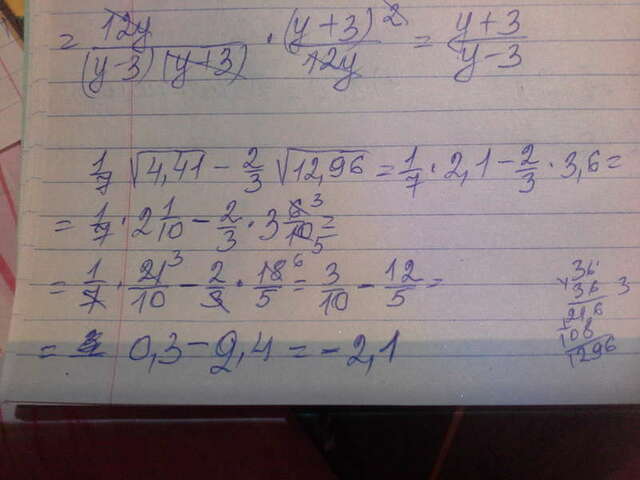 = 12y / (y-3)(y+3) · (y+3)² / 12y = y+3 / y-3
1/7 √4,41 - 2/3 √12,96 = 1/7 · 2,1 - 2/3 · 3,6 =
= 1/7 · 2 1/10 - 2/3 · 3 6/10 3 5 =
= 1/7 · 21/10 3 - 2/3 · 18/5 6 = 3/10 - 12/5 =
= 0,3 - 2,4 = - 2,1
36
× 36 3
216
+ 108
1296